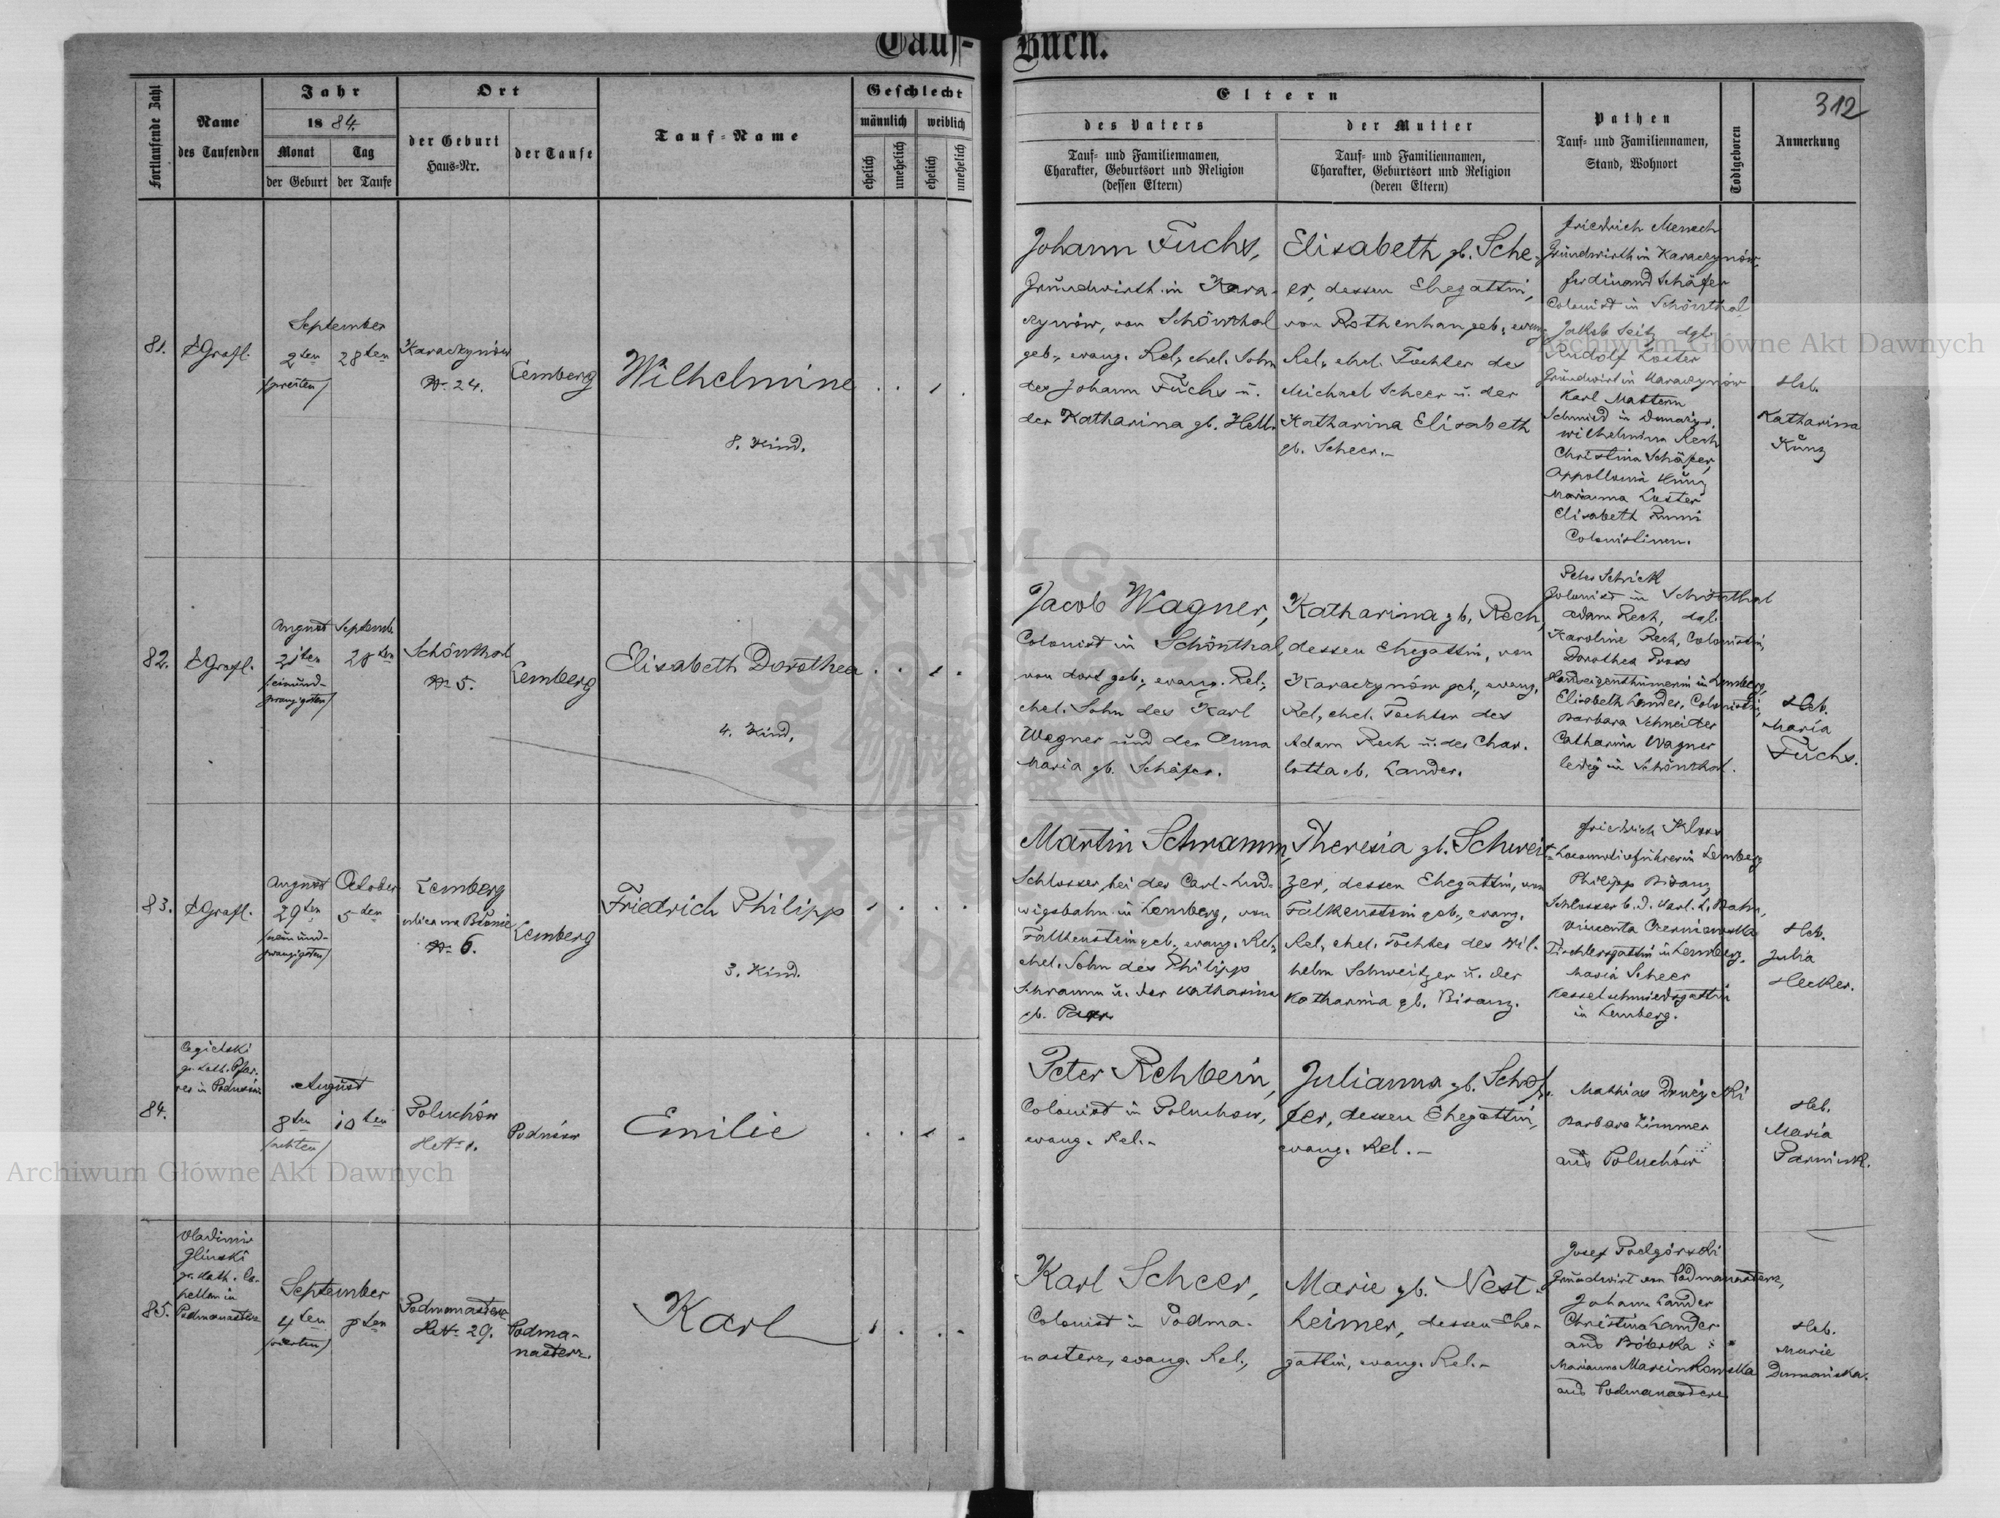 Tauf-Buch.
312
Fortlaufende Zahl
Name
des Taufenden
Jahr
18 84.
Monat
der Geburt
Tag
der Taufe
Ort
der Geburt
Haus-Nr.
der Taufe
Tauf-Name
Geschlecht
männlich
weiblich
ehelich
unehelich
ehelich
unehelich
Eltern
des Vaters
Tauf- und Familiennamen,
Charakter, Geburtsort und Religion
(dessen Eltern)
der Mutter
Tauf- und Familiennamen,
Charakter, Geburtsort und Religion
(deren Eltern)
Pathen
Tauf- und Familiennamen,
Stand, Wohnort
Todtgeboren
Anmerkung
81.
September
2ten
28ten
/zweiten/
Karaczynów
Nr. 24.
Lemberg
Wilhelmine
8. Kind.
Johann Fuchs,
Grundwirth in Kara-
czynów, von Schönthal
geb., evang. Rel., ehel. Sohn
des Johann Fuchs u.
der Katharina gb. Hell.
Elisabeth gb. Sche-
er, dessen Ehegattin,
von Rothenhan geb., evang.
Rel., ehel. Tochter des
Michael Scheer u. der
Katharina Elisabeth
gb. Scheer.-
Friedrich
Grundwirth in Karaczynów,
Ferdinand Schäfer
Colonist in Schönthal
Jakob Seitz dgl.
Rudolf Koster
Grundwirt in Karaczynów
Karl Mattern
Schmied in
Wilhelmina Rech
Christina Schäfer,
Appollonia Kunz
Marianna Koster
Elisabeth
Colonistinen.
Heb.
Katharina
Kunz
82.
August
September
21ten
28ten
/einund-
zwanzigsten/
Schönthal
Nr. 5.
Lemberg
Elisabeth Dorothea
4. Kind.
Jacob Wagner,
Colonist in Schönthal,
von dort geb., evang. Rel.,
ehel. Sohn des Karl
Wagner und der Anna
Maria gb. Schäfer.
Katharina gb. Rech,
dessen Ehegattin, von
Karaczynów geb., evang.
Rel., ehel. Tochter des
Adam Rech u. der Char-
lotta gb. Lander.
Peter Schick
Colonist in Schönthal
Adam Rech, dgl.
Karoline Rech, Colonistin,
Dorothea Pross
in Lemberg,
Elisabeth Lander, Colonistin,
Barbara Schneider
Catharina Wagner
ledig in Schönthal.
Heb.
Maria
Fuchs.
83.
August
October
29ten
5ten
/neunund-
zwanzigsten/
Lemberg
ulica na Błonie
Nr. 6.
Lemberg
Friedrich Philipp
3. Kind.
Martin Schramm,
Schlosser bei der Carl-Lud-
wigsbahn in Lemberg, von
Falkenstein geb., evang. Rel.,
ehel. Sohn des Philipp
Schramm u. der Katharina
gb.
Theresia gb. Schweit-
zer, dessen Ehegattin, von
Falkenstein geb., evang.
Rel., ehel. Tochter des Wil-
helm Schweitzer u. der
Katharina gb. Bisanz.
Friedrich Kloss
Locomotivführer in Lemberg
Philipp Bisanz
Schlosser b. d. Carl. L. Bahn,
Vincenta Czerniewska
Tischlersgattin in Lemberg.
Maria Scheer
Kesselschmiedsgattin
in Lemberg.
Heb.
Julia
Hecker.
84.
Cegielski
gr. kath. Pfar-
rer in Podusów
August
8ten
10ten
/achten/
Poluchów
HNr 1.
Podusów
Emilie
Peter Rehbein,
Colonist in Poluchow,
evang. Rel.-
Julianna gb. Schäf-
fer, dessen Ehegattin,
evang. Rel.-
Mathias
Barbara Zimmer
aus Poluchów
Heb.
Maria
85.
Vladimir
Glinski
gr. kath. Ca-
pellan in
Podmanasterz
September
4ten
8ten
/vierten/
Podmanasterz
HNr. 29.
Podma-
nasterz.
Karl
Karl Scheer,
Colonist in Podma-
nasterz, evang. Rel.,
Marie gb. Nest-
heimer, dessen Ehe-
gattin, evang. Rel.-
Josef Podgórski
Grundwirt von Podmanasterz,
Johann Lander
Christina Lander
aus Bóbrka
Marianna Marcinkowska
aus Podmanasterz
Heb.
Marie
Dumańska.
Archiwum Główne Akt Dawnych
Archiwum Główne Akt Dawnych